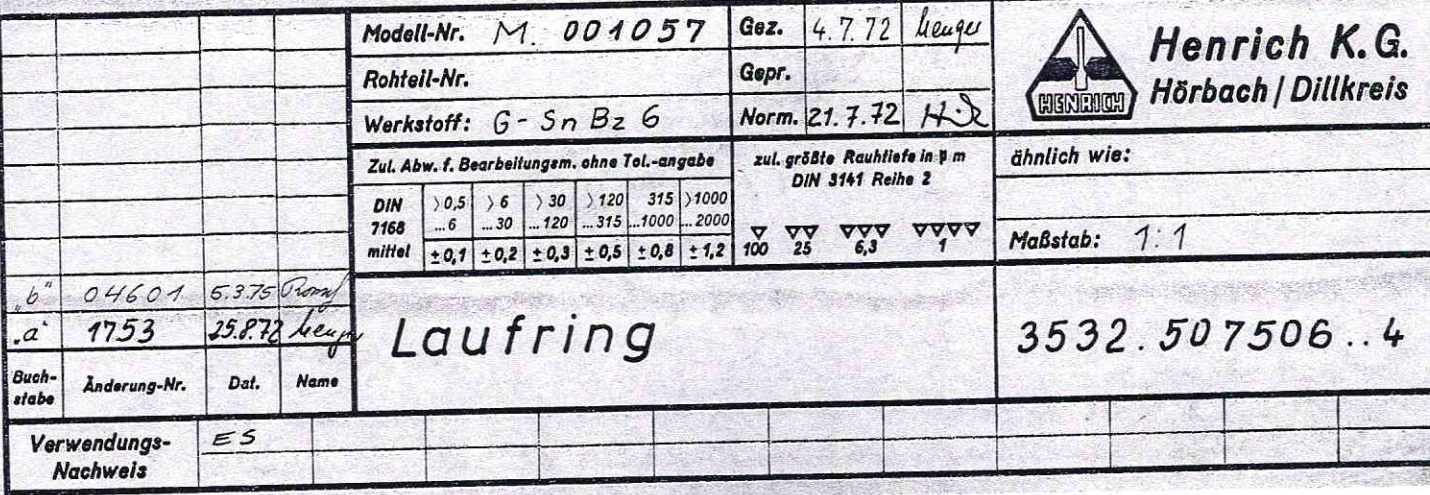 Modell-Nr. M. 001057
Rohteil-Nr.
Werkstoff: G-SnBz 6
Gez. 4.7.72
Gepr.
Norm. 21.7.72
HENRICH
Henrich K.G.
Hörbach / Dillkreis
Zul. Abw. f. Bearbeitungsm. ohne Tol.-angabe
DIN 7168 mittel
>0,5 >6 >30 >120 315 >1000
...6 ...30 ...120 ...315 ...1000 ...2000
±0,1 ±0,2 ±0,3 ±0,5 ±0,8 ±1,2
zul. größte Rauhtiefe in µm
DIN 3141 Reihe 2
▽ ▽▽ ▽▽▽ ▽▽▽▽
100 25 6,3 1
ähnlich wie:
Maßstab: 1:1
„b" 04601 5.3.75
„a" 1753 25.8.72
Buch-
stabe
Änderung-Nr. Dat. Name
Laufring
3532.507506..4
Verwendungs-
Nachweis
ES